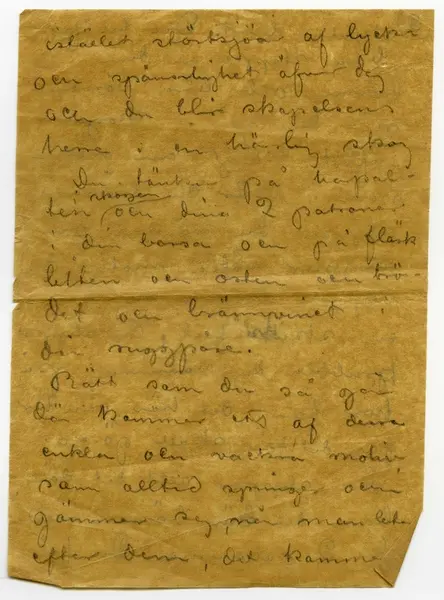 istället störtsjöar af lycka
och spänstighet öfver dig
och du blir skapelsens
herre i en härlig skog
Du tänker på
skogen
och dina 2 patroner
i din bössa och på fläsk
biten och osten och brö-
det och brännvinet i
din ryggpåse.
Rätt som du så går
där kommer ett af dessa
enkla och vackra motiv
som alltid springer och
gömmer sig, når man leta
efter dem, det kommer